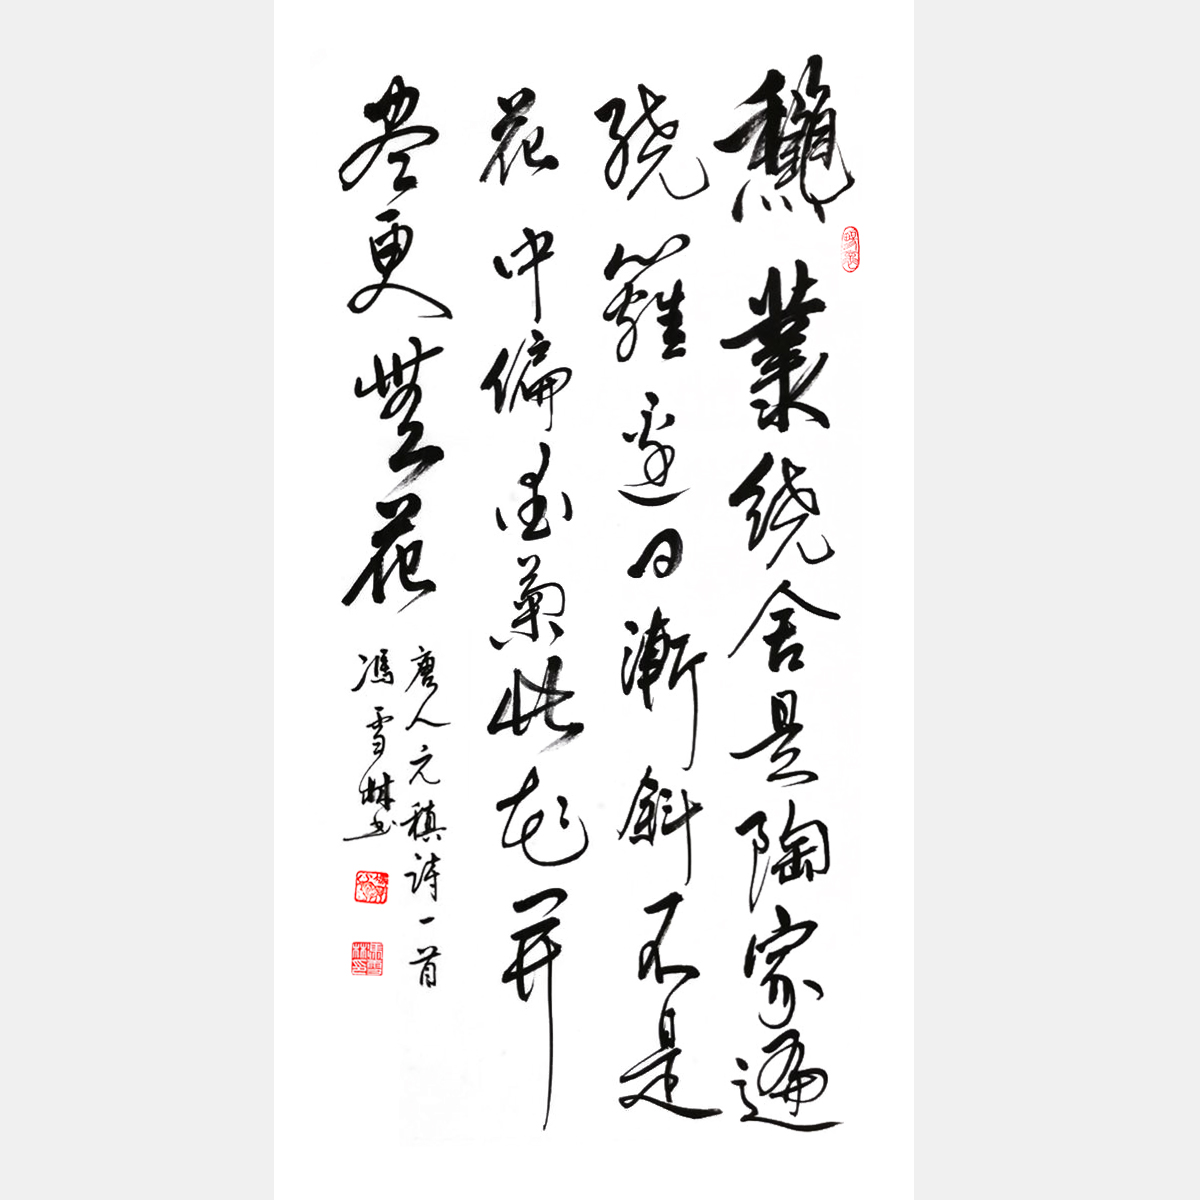 龝叢绕舍是陶家遍
绕籬邊日漸斜不是
花中偏愛菊此花開
尽更無花
唐人元稹诗一首
馮雪林书